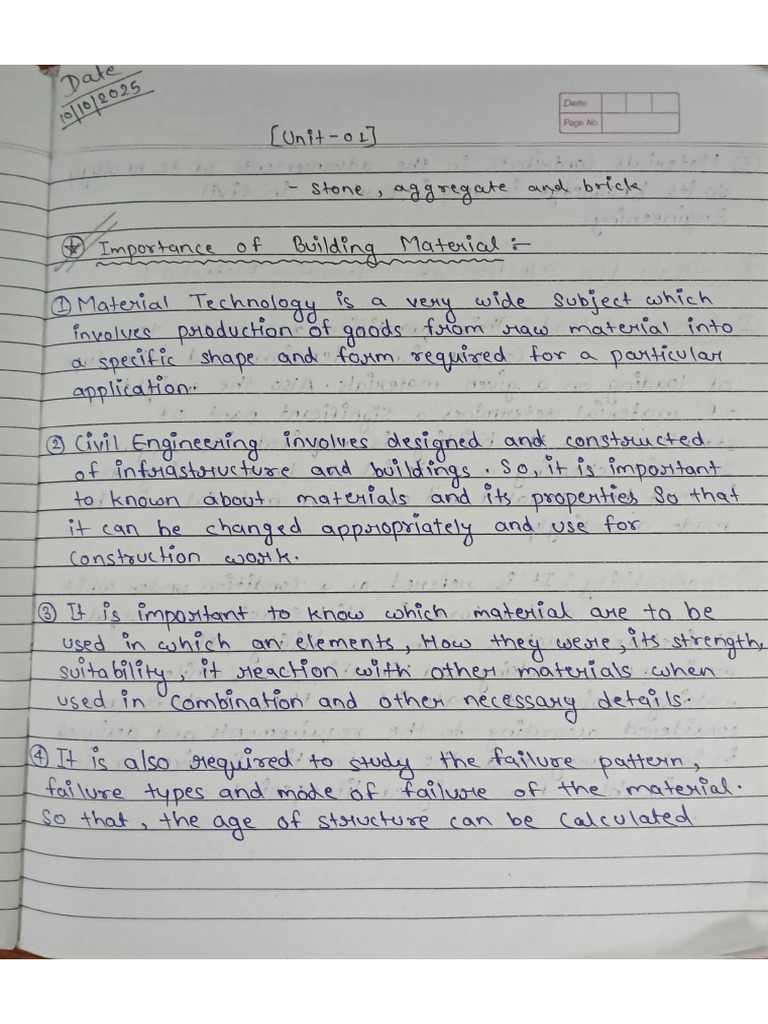 Date
10/10/2025
Date
Page No
[Unit-01]
- stone, aggregate and brick
Importance of Building Material :-
① Material Technology is a very wide subject which
involves production of goods from raw material into
a specific shape and form required for a particular
application.
② Civil Engineering involves designed and constructed
of infrastructure and buildings. So, it is important
to known about materials and its properties So that
it can be changed appropriately and use for
construction work.
③ It is important to know which material are to be
used in which an elements, How they were, its strength,
suitability, it reaction with other materials when
used in combination and other necessary details.
④ It is also required to study the failure pattern,
failure types and mode of failure of the material.
So that, the age of structure can be calculated